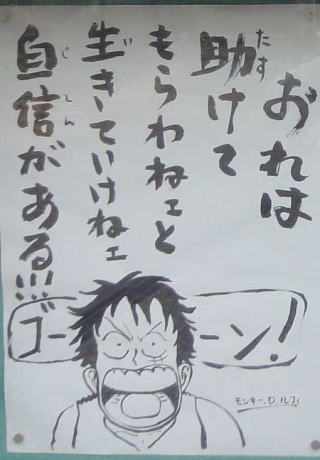 おれは
助けて
もらわねェと
生きていけねェ
自信がある!!!
ゴーーン!
モンキー.D.ルフィ